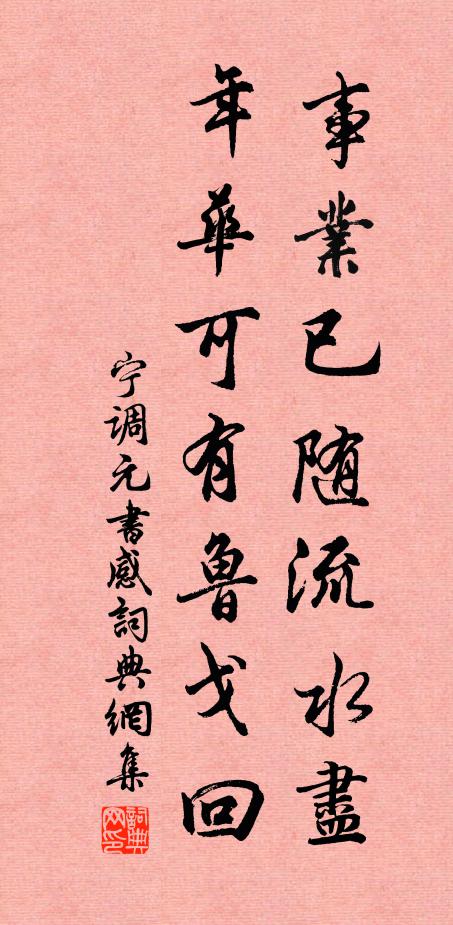 事業已随流水盡
年華可有魯戈回
宁调元書感詞典網集
詞典网印